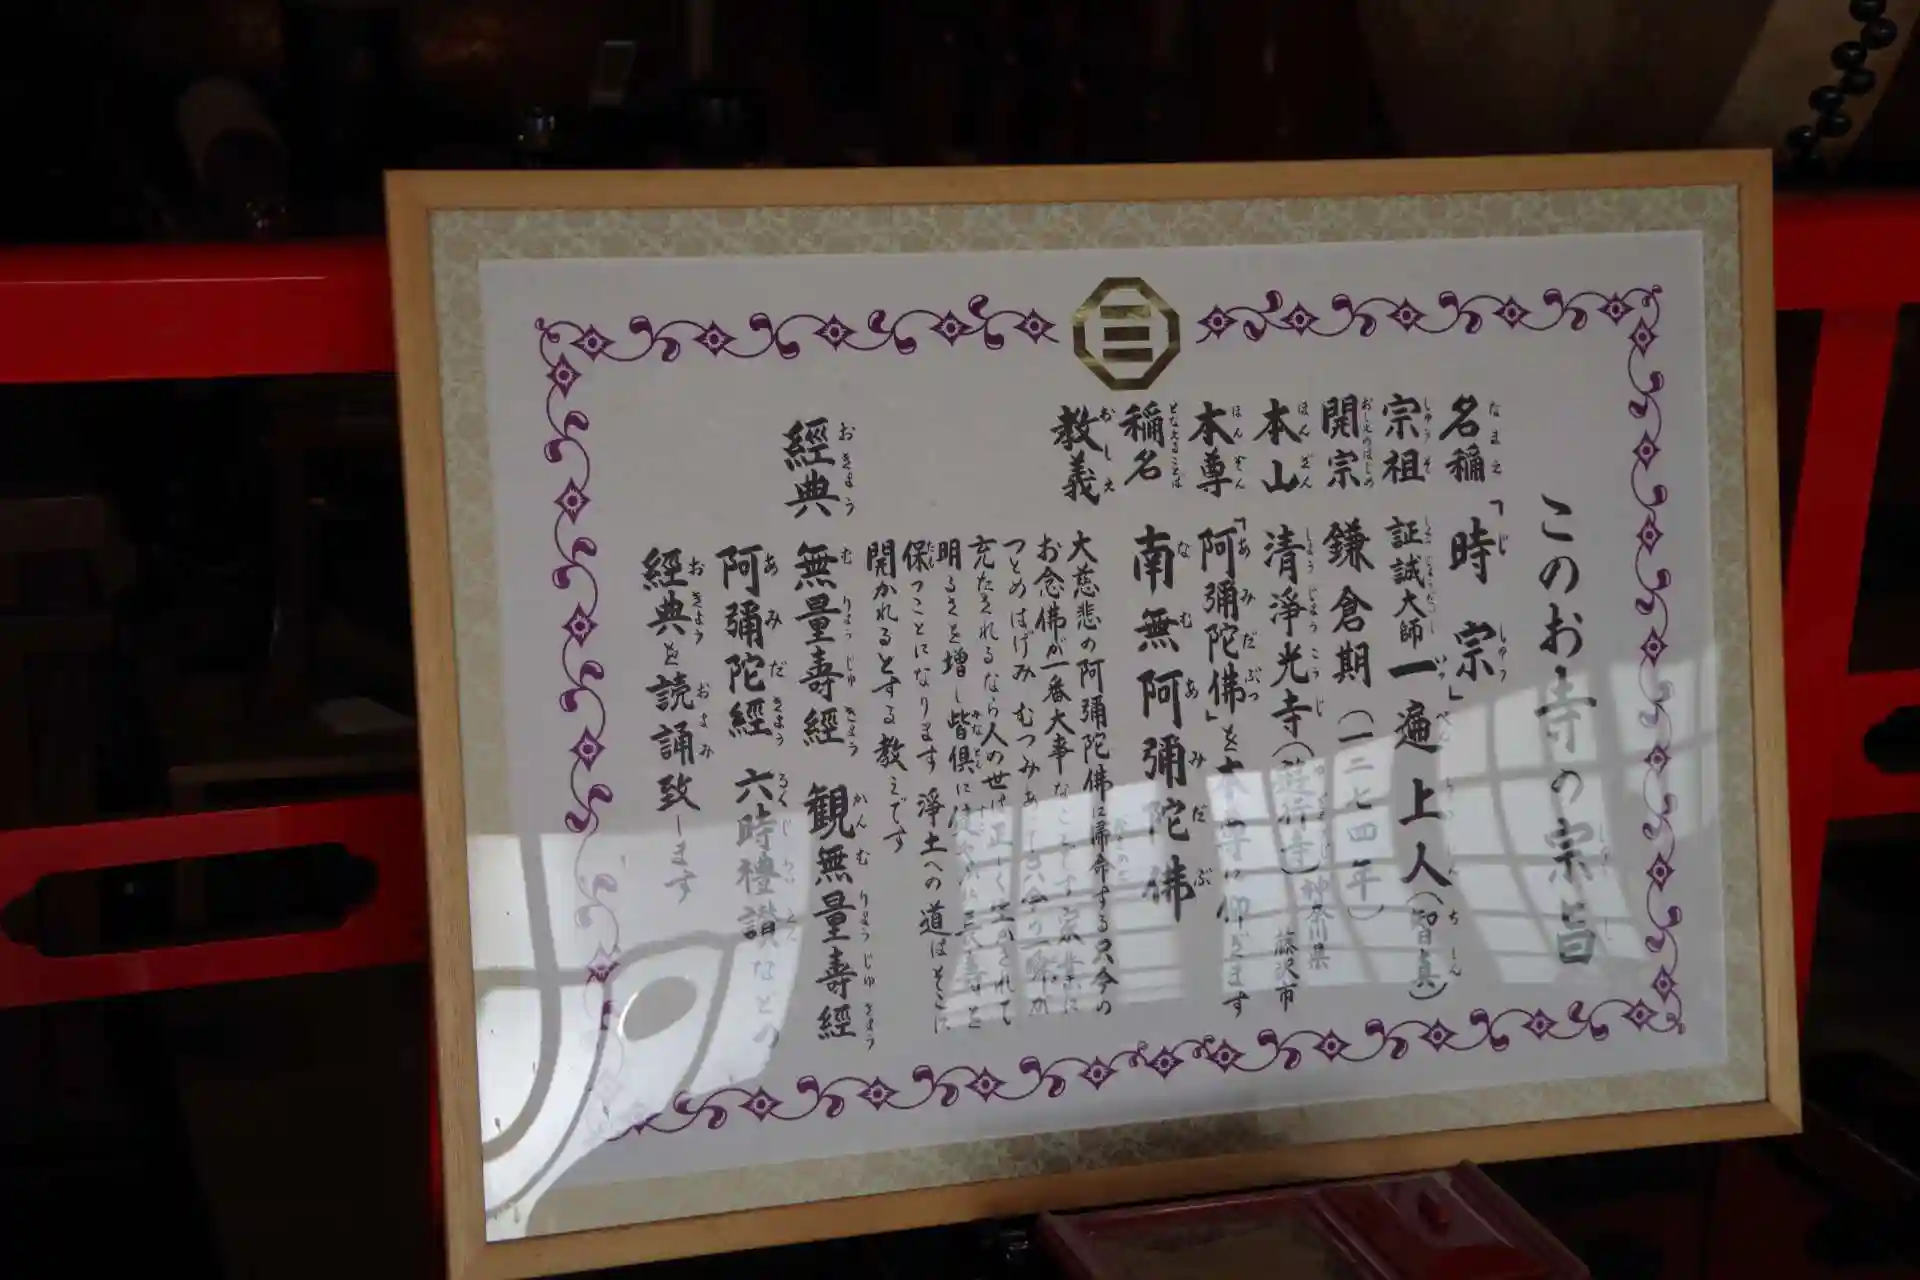 このお寺の宗旨
名稱 「時宗」
宗祖 証誠大師 一遍上人(智真)
開宗 鎌倉期(一二七四年)
本山 清淨光寺(遊行寺)神奈川県藤沢市
本尊 「阿彌陀佛」を本尊に仰ぎます
稱名 南無阿彌陀佛
教義 大慈悲の阿彌陀佛に帰命する只今の
お念佛が一番大事なことです 家業に
つとめはげみ むつみあ 只今の一瞬が
充たされるなら人の世は正しく生かされて
明るさを増し皆倶に 長壽を
保つことになります 淨土への道はそこに
開かれるとする教えです
經典 無量壽經 観無量壽經
阿彌陀經 六時禮讃などの
經典を読誦致します